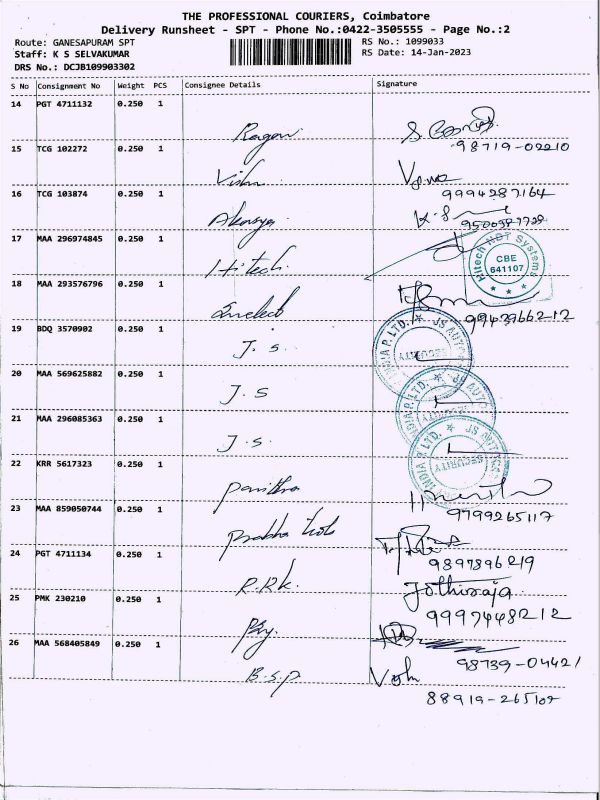 THE PROFESSIONAL COURIERS, Coimbatore
Delivery Runsheet - SPT - Phone No.:0422-3505555 - Page No.:2
Route: GANESAPURAM SPT RS No.: 1099033
Staff: K S SELVAKUMAR RS Date: 14-Jan-2023
DRS No.: DCJB109903302
S No Consignment No Weight PCS Consignee Details Signature
14 PGT 4711132 0.250 1
Ragavi
98719-02210
15 TCG 102272 0.250 1
Vishnu
9994287164
16 TCG 103874 0.250 1
Akasya K.S
9500587728
17 MAA 296974845 0.250 1
Hitech Hitech NDT Systems CBE 641107
18 MAA 293576796 0.250 1
9943966212
19 BDQ 3570902 0.250 1
J. S. INDIA P. LTD. JS AUTO SECURITY
20 MAA 569625882 0.250 1
J. S INDIA P. LTD. JS AUTO SECURITY
21 MAA 296085363 0.250 1
J. S. INDIA P. LTD. JS AUTO SECURITY
22 KRR 5617323 0.250 1
Pavithra
9799265117
23 MAA 859050744 0.250 1
Prabha Tools
9897896219
24 PGT 4711134 0.250 1
R.R.K. Jothiraja
9997448212
25 PMK 230210 0.250 1
98739-04421
26 MAA 568405849 0.250 1
B.S.P
88919-265102